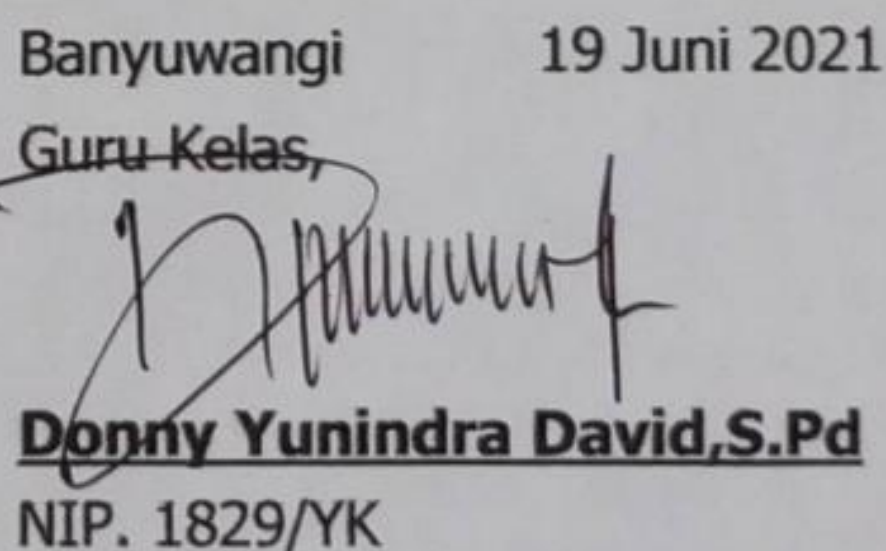 Banyuwangi 19 Juni 2021
Guru Kelas,
Donny Yunindra David,S.Pd
NIP. 1829/YK